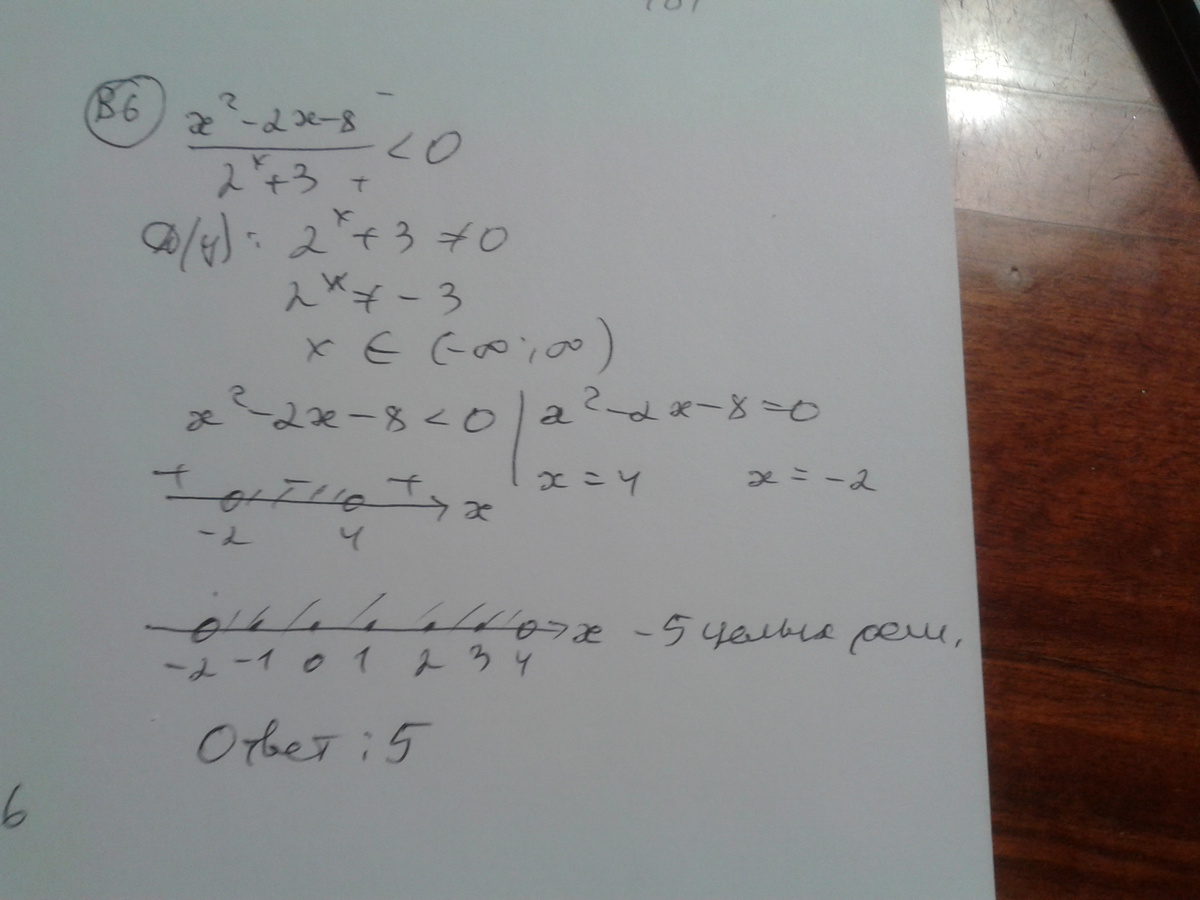 В6 (x²-2x-8)/(2ˣ+3) < 0
- +
D(y): 2ˣ+3≠0
2ˣ≠-3
x ∈ (-∞; ∞)
x²-2x-8<0 | x²-2x-8=0
+ - + x
x=4 x=-2
-2 4
x - 5 целых реш.
-2 -1 0 1 2 3 4
Ответ: 5
6